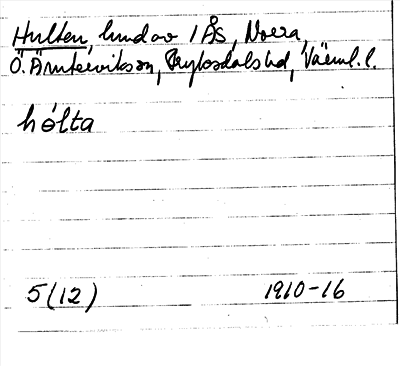 Hulten, lund av 1 Ås, Norra,
Ö. Ämtervik sn, Fryksdals hd, Värml. l.
hólta
5(12) 1910-16